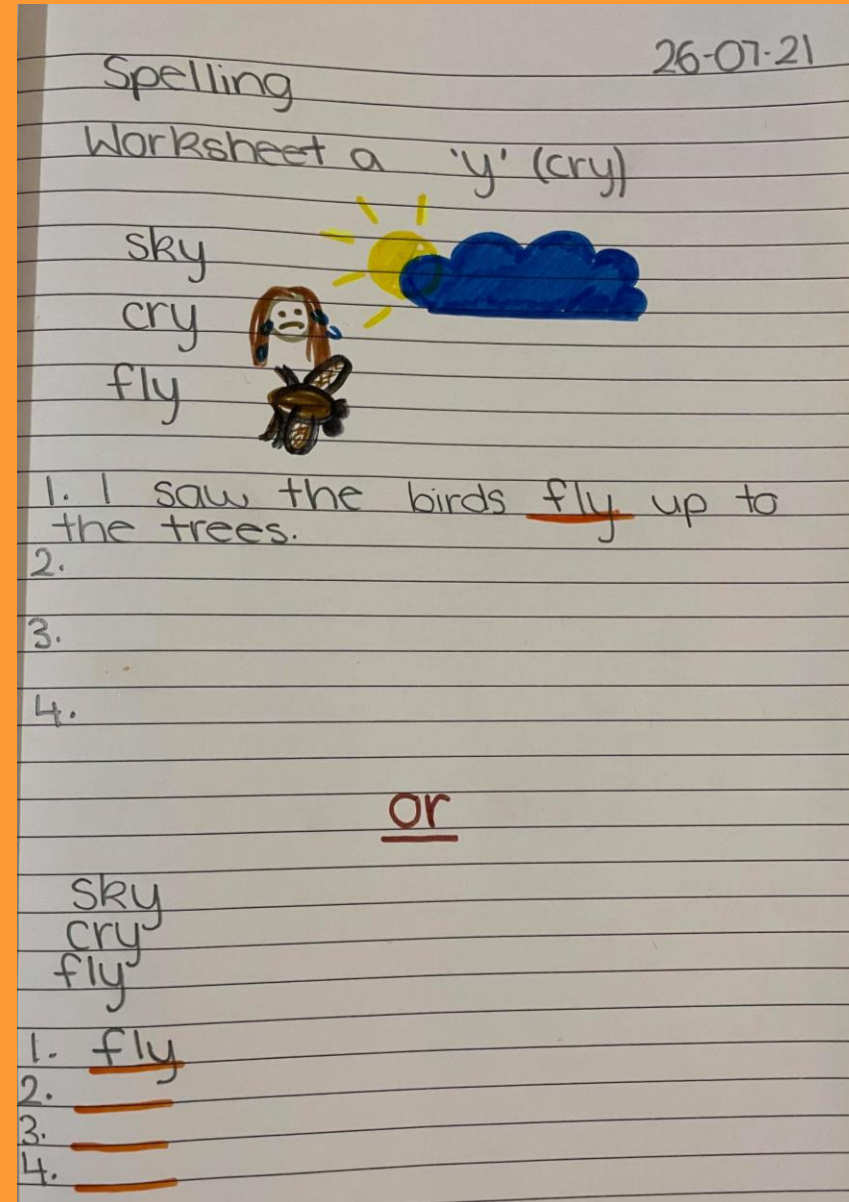 26-07-21
Spelling
Worksheet a 'y' (cry)
sky
cry
fly
1. I saw the birds fly up to
the trees.
2.
3.
4.
or
sky
cry
fly
1. fly
2.
3.
4.